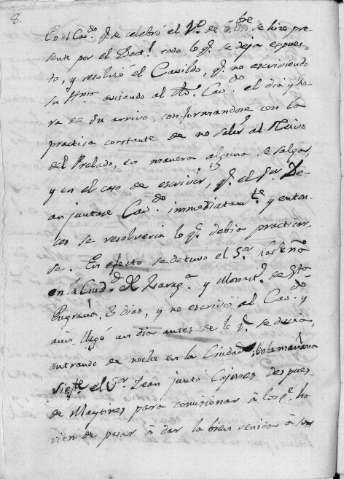 8.
En el Cav.do q.e se celebró el V.s de se hizo pre-
sente por el Doct.l todo lo q.e se deja expues-
to, y resolvió el Cavildo, q.e no escriviendo
su Yllma avisando al Yllo Cav.do el dia y ho-
ra de su arrivo, conformandose con la
practica constante de no salir al recivo
del Prelado, en manera alguna se salga,
y en el caso de escrivir, q.e el S.or De-
an juntase Cav.do immediatam.te y enton-
ces se resolveria lo q.e debia practicar-
se. En efecto se detuvo el S.or
en la Ciud.d de Zarag.a y Monast.o de S.ta
Engracia, dias, y no escrivió al Cav.do y
aun llegó un dia antes de lo q.e se decia,
entrando de noche en la Ciudad. La mañana
sig.te el S.or Dean juntó Cajones despues
de Maytines para comisionar à los q.e ha-
vian de pasar à dar la bien venida à su